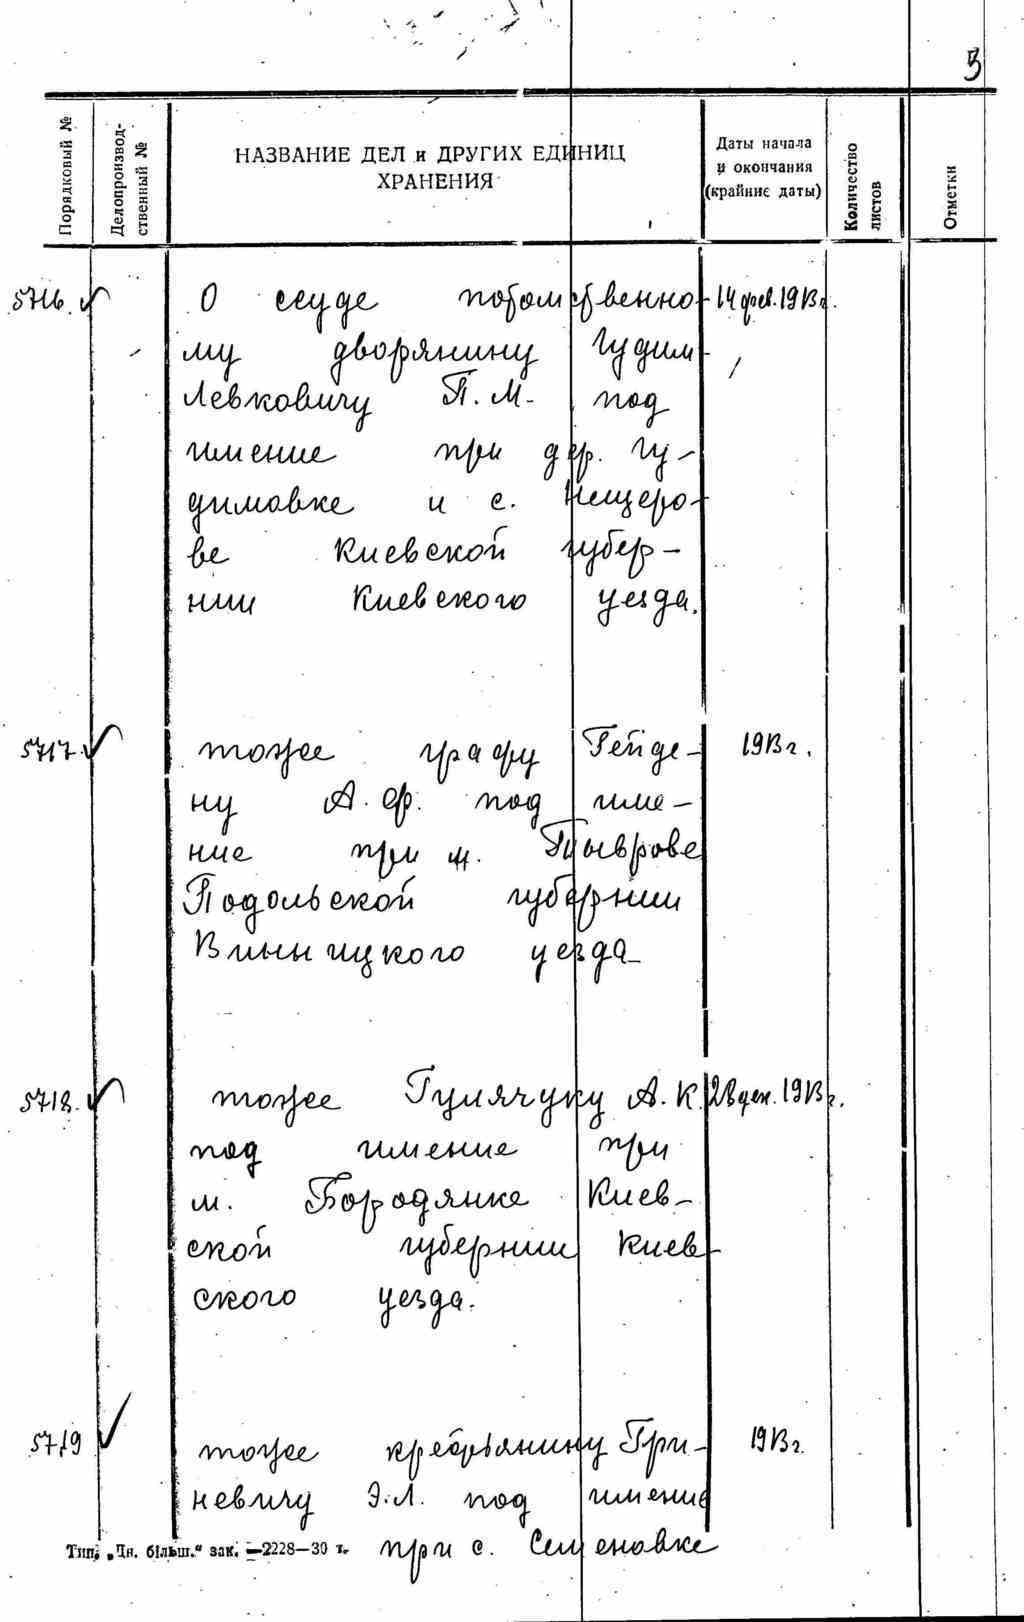 3
Порядковый №
Делопроизвод-
ственный №
НАЗВАНИЕ ДЕЛ и ДРУГИХ ЕДИНИЦ
ХРАНЕНИЯ
Даты начала
и окончания
(крайние даты)
Количество
листов
Отметки
5716. О ссуде потомственно- 14 фев. 1913 г.
му дворянину Гудим-
Левковичу П. М. под
имение при дер. Гу-
димовке и с. Нещеро-
ве Киевской губер-
нии Киевского уезда.
5717. тоже графу Гейде- 1913 г.
ну А. Ф. под име-
ние при м. Тыврове
Подольской губернии
Винницкого уезда
5718. тоже Гулячуку А. К. 1913 г.
под имение при
м. Бородянке Киев-
ской губернии Киев-
ского уезда.
5719 тоже крестьянину Гри- 1913 г.
невичу Э. Л. под имение
при с. Семеновке
Тип. „Ін. більш." зак. —2228—30 т.